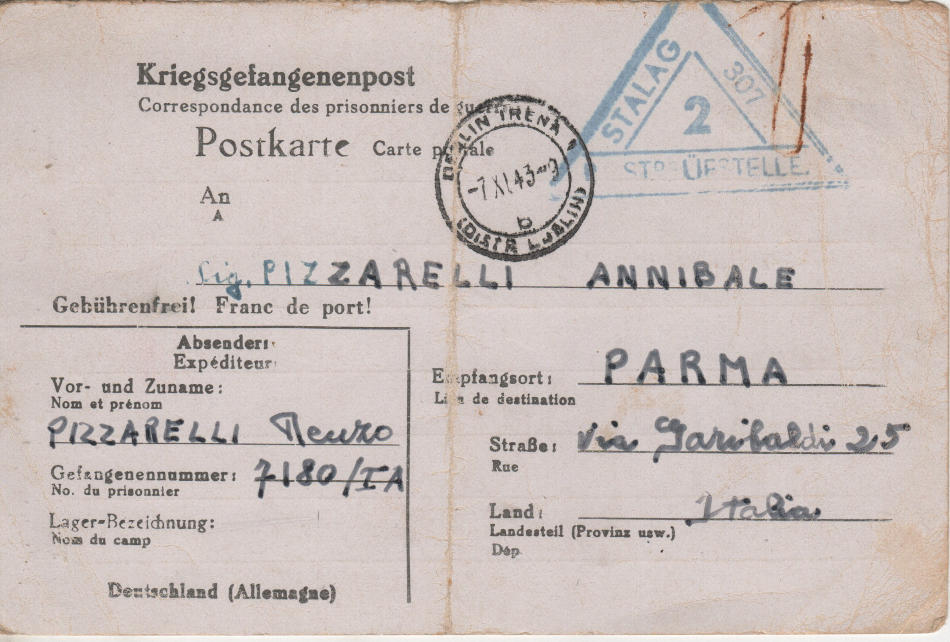 Kriegsgefangenenpost
Correspondance des prisonniers de guerre
Postkarte Carte postale
STALAG 307
2
DEBLIN IRENA
-7.XI.43-9
b
(DISTR. LUBLIN)
An
A
Sig. PIZZARELLI ANNIBALE
Gebührenfrei! Franc de port!
Absender:
Expéditeur:
Vor- und Zuname:
Nom et prénom
PIZZARELLI Renzo
Gefangenennummer: 7180/IA
No. du prisonnier
Lager-Bezeichnung:
Nom du camp
Deutschland (Allemagne)
Empfangsort: PARMA
Lieu de destination
Straße: Via Garibaldi 25
Rue
Land: Italia
Landesteil (Provinz usw.)
Dép.